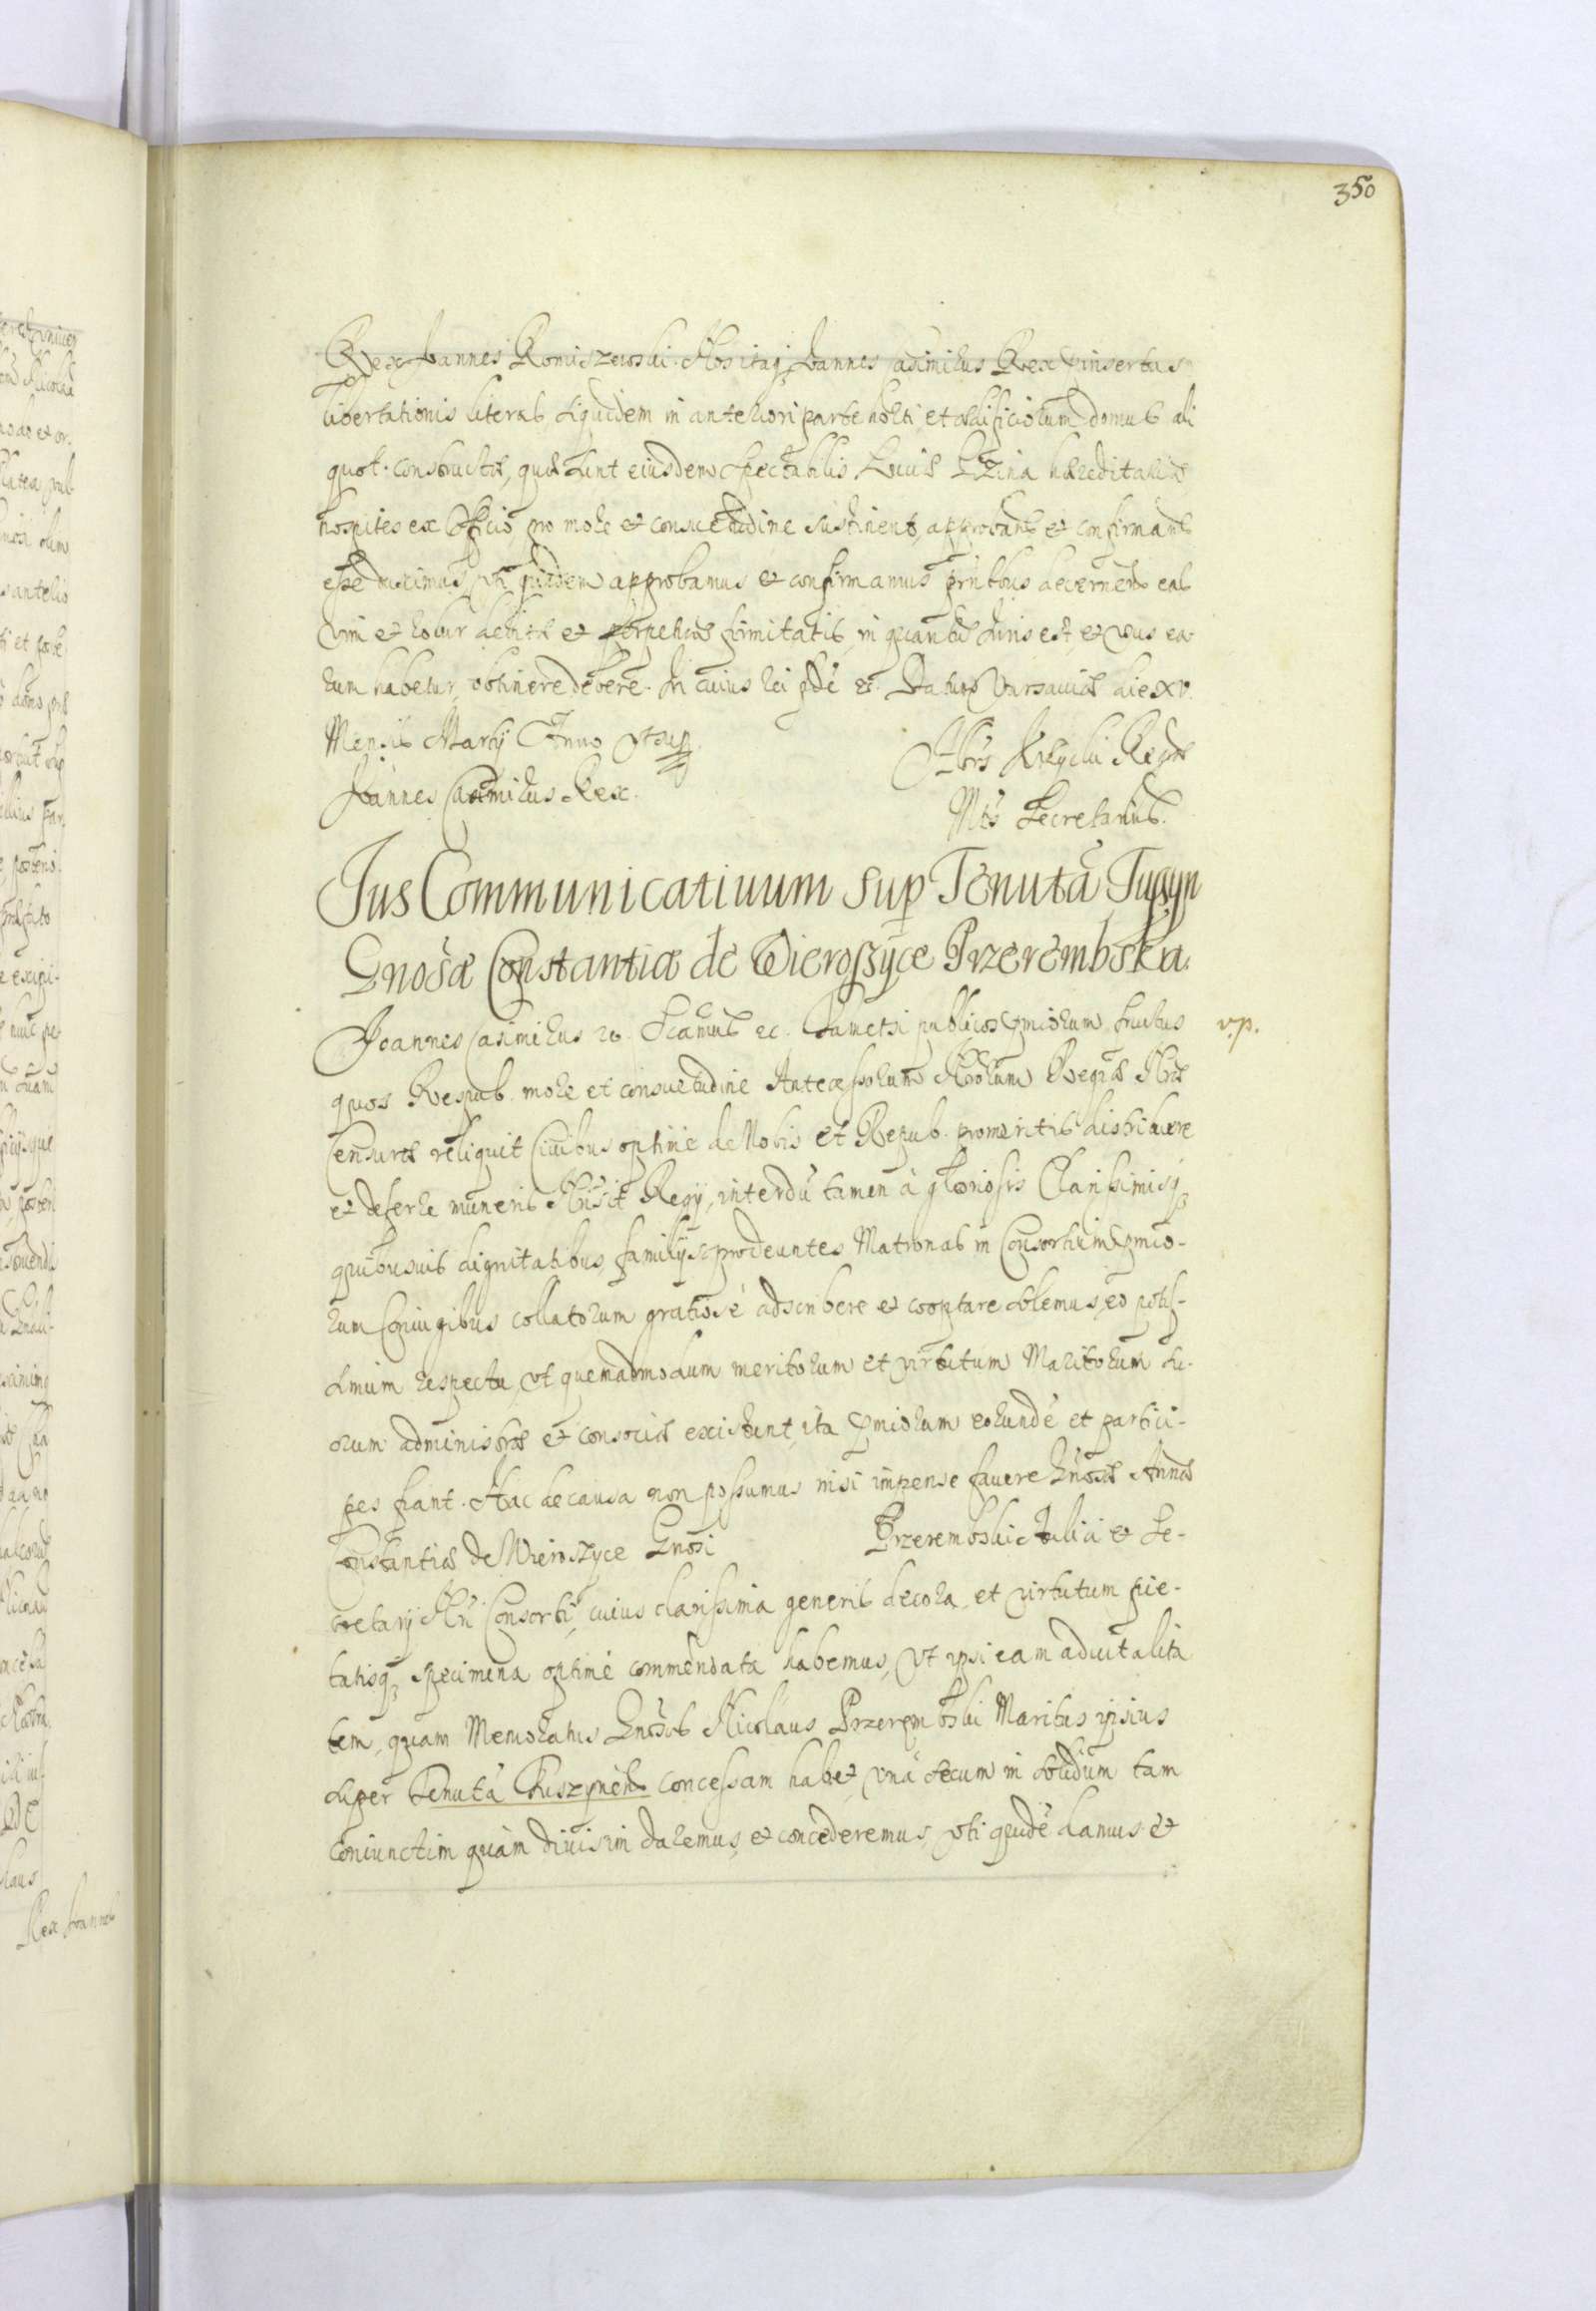 350
Rex Joannes Romiszewski. Nos itaq; Joannes Casimirus Rex pinsertas
libertationis literas siquidem in anteriori parte horti, et ædificiorum domus ali
quot. constructæ, quæ sunt eiusdem Spectabilis Lucæ hæreditariæ
hospites ex Officio pro more et consuetudine sustinent, approband et confirmand
esse duximus, vti quidem approbamus et confirmamus pntibus decernen eas
vim et robur debitæ et perpetuæ firmitatis, in quantũ Juris est, et vsus ea-
rum habetur, obtinere debere. In cuius rei fidẽ &. Datum Varsaviæ die XV.
Mensis Martij Anno vt sup
Joannes Casimirus Rex.
Albrs Krzycki Regæ
Mtis Secretarius.
Jus Communicatiuum sup Tenutã Tuszyn
Gnosæ Constantiæ de Wieroszyce Przerembska.
Joannes Casimirus &. Seamus &c. Tametsi publicos pmiorum fructus
v.p.
quos Respub. more et consuetudine Antecessorum Nrorum Regiæ Nræ
Censuræ reliquit Ciuibus optime de Nobis et Repub. promeritis distribuere
et deferre muneris Nri sit Regij, interdũ tamen à gloriosis Clarissimisq;
quibusuis dignitatibus, familijs prodeuntes Matronas in Consortium pmio-
rum Coniugibus collatorum gratiosè adscribere et cooptare solemus, eo potis-
simum respectu, vt quemadmodum meritorum et virtutum Maritorum su-
orum administræ et consociæ existunt, ita pmiorum eorundẽ et partici-
pes fiant. Hac de causa non possumus nisi impense fauere Gnosæ Annæ
Constantiæ de Wieroszyce Gnosi Przerembski Aulici et Se-
cretarij Nri Consorti, cuius clarissima generis decora, et virtutum pie-
tatisq; specimina optime commendata habemus, vt ipsi eam aduitalita
tem, quam Memoratus Gnosus Nicolaus Przerembski Maritus ipsius
super Tenutã Tuszynen concessam habet, vnà secum in solidum tam
coniunctim quàm diuisim daremus, et concederemus, vti quidẽ damus et